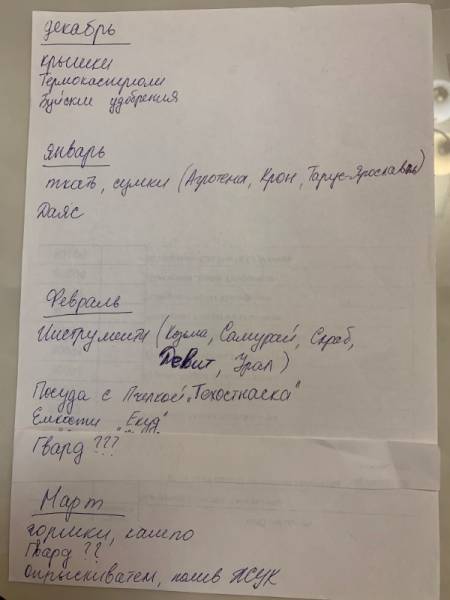 декабрь
крышки
Термокастрюли
Буйские удобрения
январь
ткать, сумки (Агротема, Крон, Тарус-Ярославль)
Даяс
Февраль
Инструменты (Козьма, Самурай, Скраб,
Девит, Урал)
Посуда с Пчелкой
Емкости "Екуд"
Гвард ???
Март
горшки, кашпо
Гвард ??
опрыскиватели, полив ЖУК